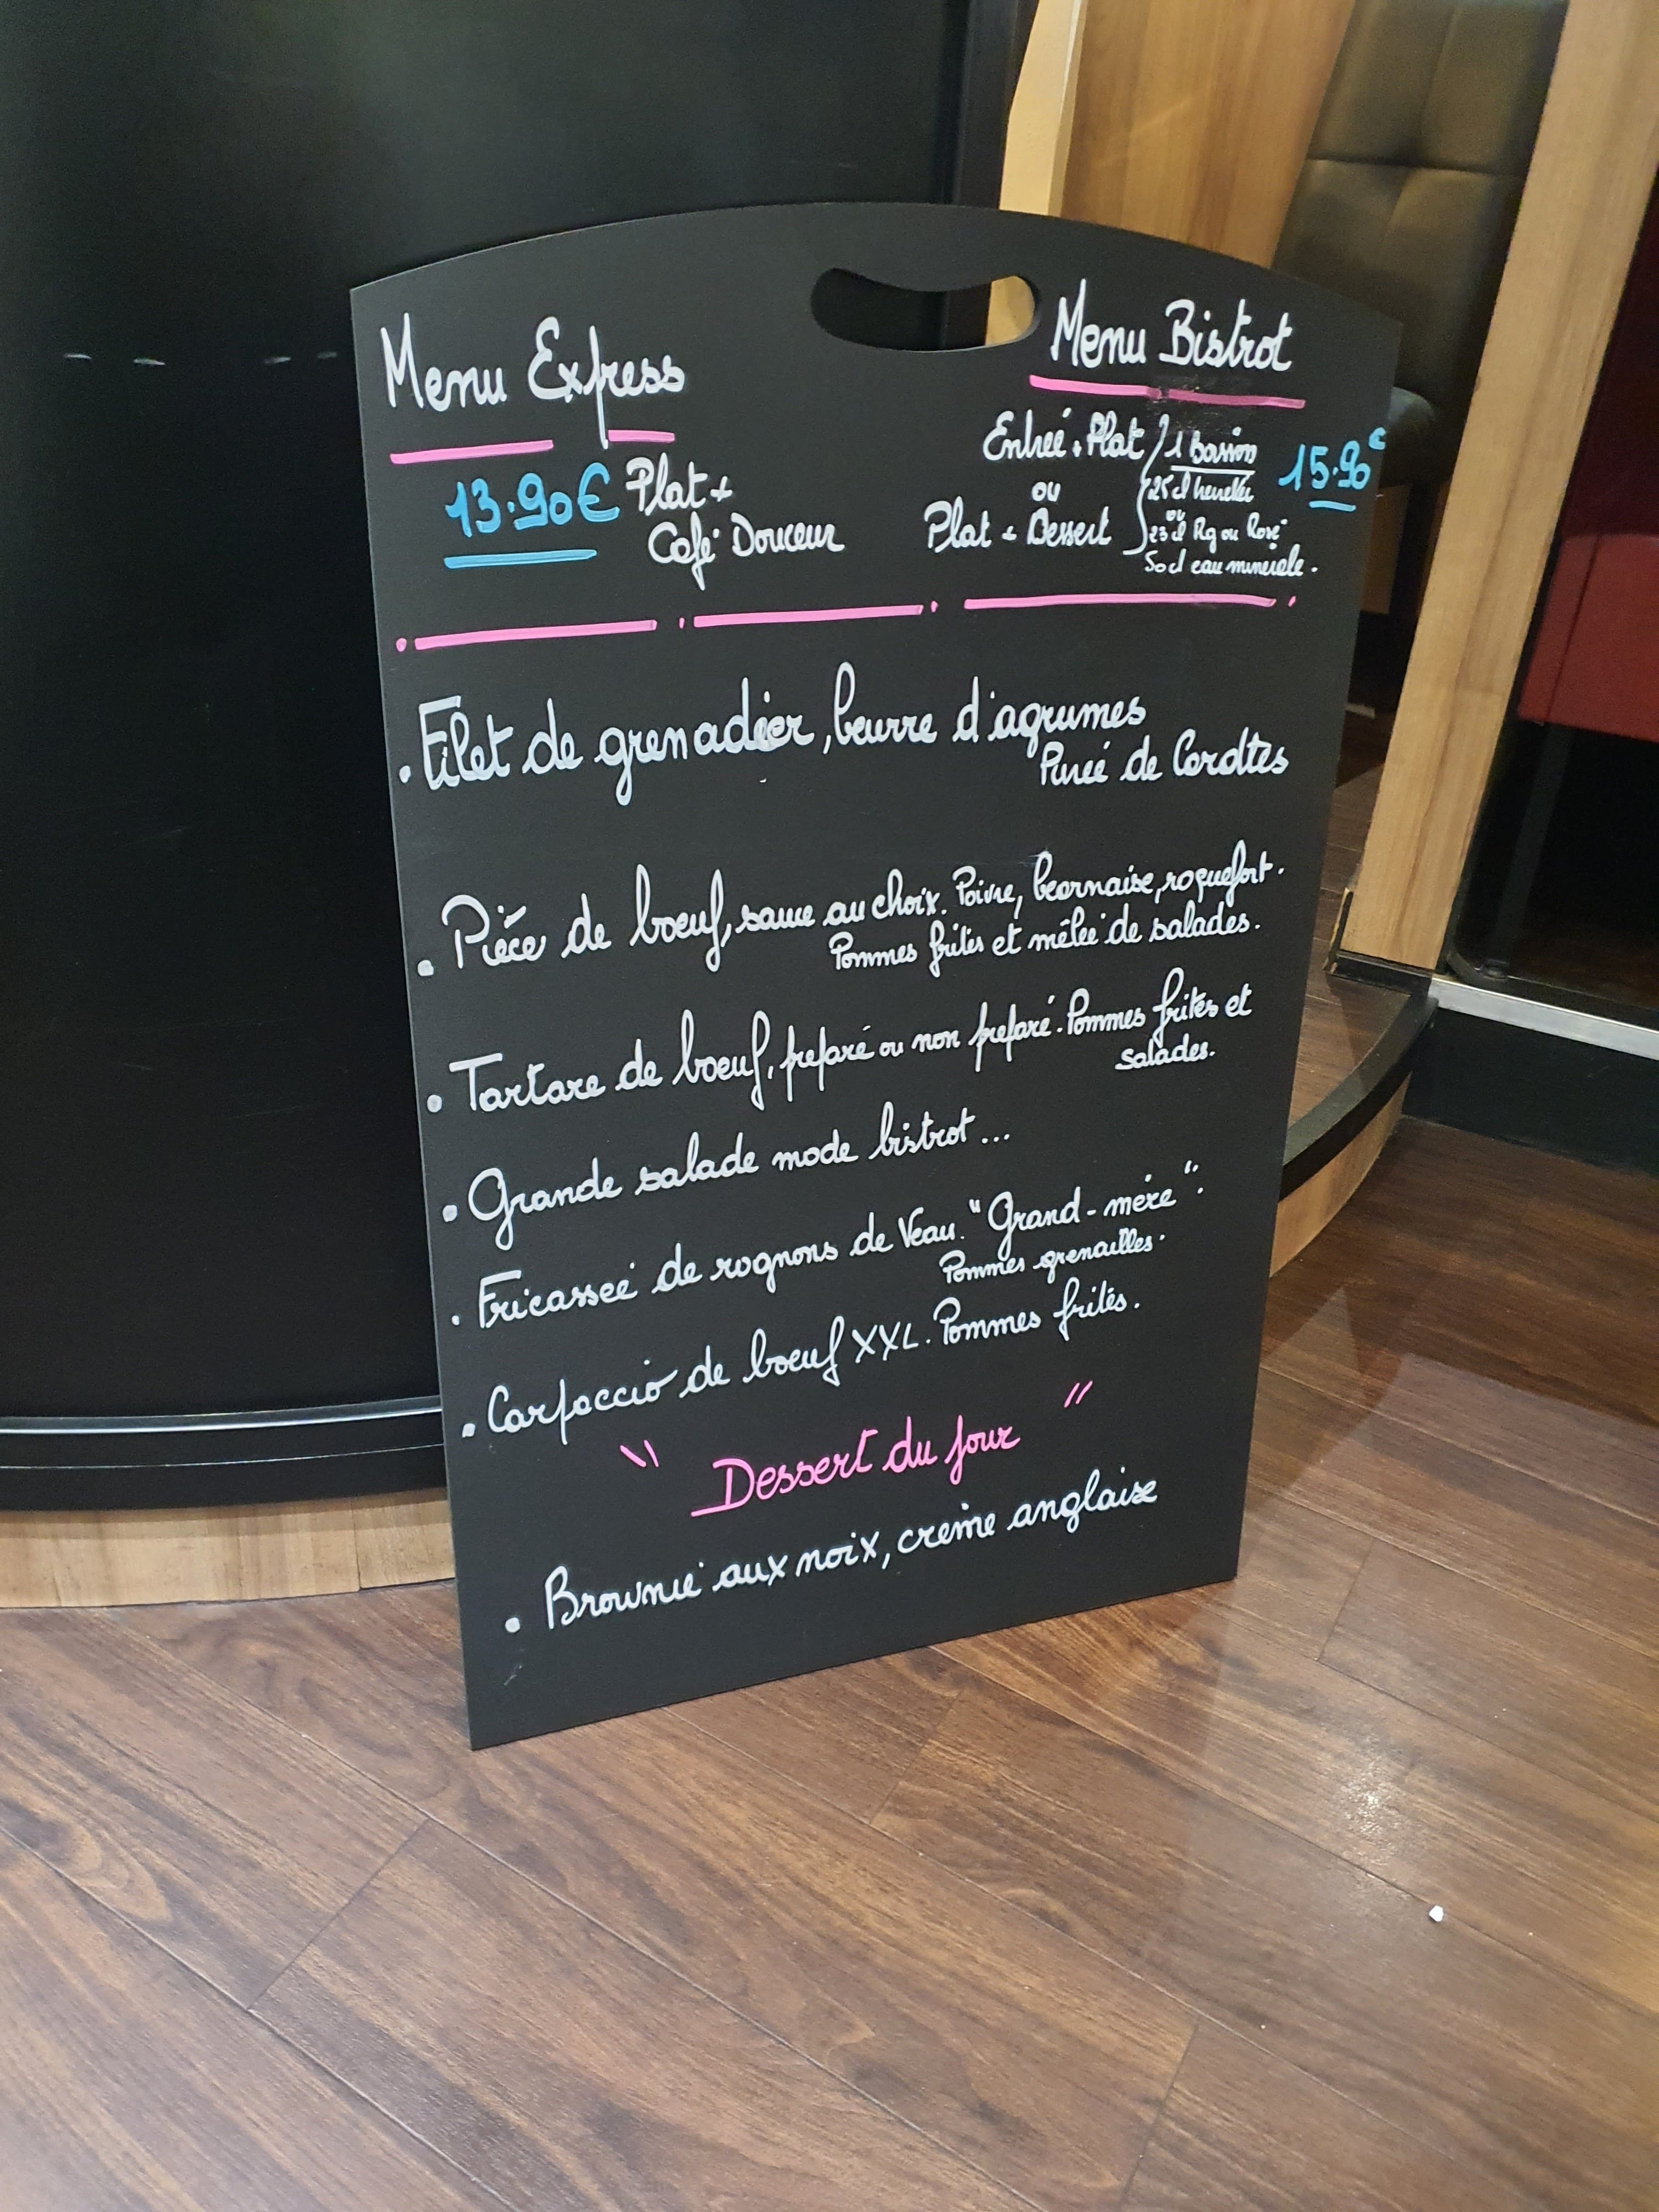 Menu Express
13.90€ Plat +
Café Douceur
Menu Bistrot
Entrée + Plat
ou
Plat + Dessert
1 Boisson
25cl heineken
ou
23cl Rg ou Rosé
50cl eau minérale.
15.90€
. Filet de grenadier, beurre d'agrumes
Purée de Carottes
. Pièce de boeuf, sauce au choix. Poivre, bearnaise, roquefort.
Pommes frites et mêlée de salades.
. Tartare de boeuf, préparé ou non préparé. Pommes frites et
salades.
. Grande salade mode bistrot...
. Fricassée de rognons de Veau. "Grand-mère".
Pommes grenailles.
. Carpaccio de boeuf XXL. Pommes frites.
" Dessert du jour "
. Brownie aux noix, crème anglaise